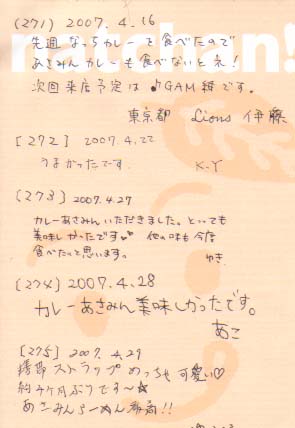 (271) 2007.4.16
natchan!
先週 なっちカレーを食べたので
あさみんカレーも食べないとネ!
次回来店予定は♪GAM 緑です。
東京都 Lions 伊藤
[272] 2007.4.22
うまかったです。 K-Y
(273) 2007.4.27
カレーあさみんいただきました。とっても
美味しかったです 他の味も今度
食べたいと思います。 ゆき
(274) 2007.4.28
カレーあさみん美味しかったです。
あこ
[275] 2007.4.29
携帯ストラップ めっちゃ可愛い♡
約4ヶ月ぶりです〜☆
あさみんらーめん